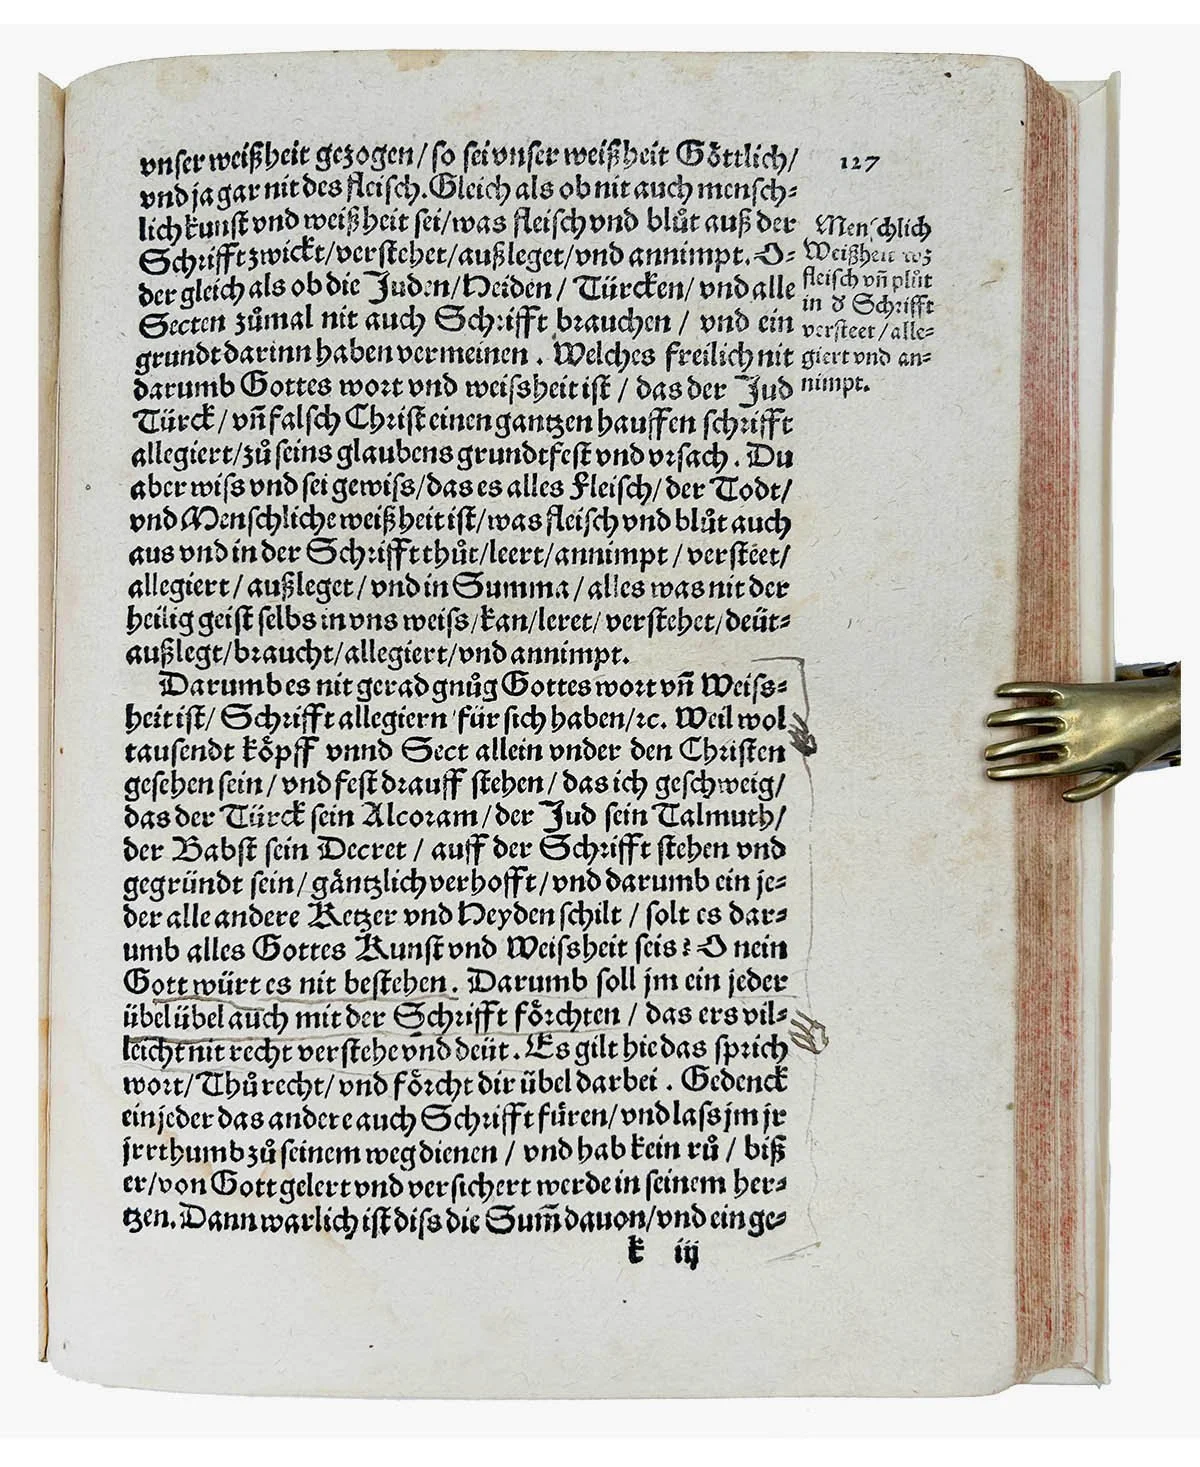 127
vnser weißheit gezogen/ so sei vnser weißheit Göttlich/
vnd ja gar nit des fleisch. Gleich als ob nit auch mensch⸗
lich kunst vnd weißheit sei/ was fleisch vnd blůt auß der
Schrifft zwickt/ verstehet/ außleget/ vnd annimpt. O⸗
der gleich als ob die Juden/ Heiden/ Türcken/ vnd alle
Secten zůmal nit auch Schrifft brauchen/ vnd ein
grundt darinn haben vermeinen. Welches freilich nit
darumb Gottes wort vnd weissheit ist/ das der Jud
Türck/ vñ falsch Christ einen gantzen hauffen schrifft
allegiert/ zů seins glaubens grundtfest vnd vrsach. Du
aber wiss vnd sei gewiss/ das es alles Fleisch/ der Todt/
vnd Menschliche weißheit ist/ was fleisch vnd blůt auch
aus vnd in der Schrifft thůt/ leert/ annimpt/ versteet/
allegiert/ außleget/ vnd in Summa/ alles was nit der
heilig geist selbs in vns weiss/ kan/ leret/ verstehet/ deüt⸗
außlegt/ braucht/ allegiert/ vnd annimpt.
Darumb es nit gerad gnůg Gottes wort vñ Weiss⸗
heit ist/ Schrifft allegiern für sich haben/ ꝛc. Weil wol
tausendt köpff vnnd Sect allein vnder den Christen
gesehen sein/ vnd fest drauff stehen/ das ich geschweig/
das der Türck sein Alcoram/ der Jud sein Talmuth/
der Babst sein Decret/ auff der Schrifft stehen vnd
gegründt sein/ gäntzlich verhofft/ vnd darumb ein je⸗
der alle andere Ketzer vnd Heyden schilt/ solt es dar⸗
umb alles Gottes Kunst vnd Weissheit seis? O nein
Gott würt es nit bestehen. Darumb soll jm ein jeder
übel übel auch mit der Schrifft förchten/ das ers vil⸗
leicht nit recht verstehe vnd deüt. Es gilt hie das sprich
wort/ Thů recht/ vnd förcht dir übel darbei. Gedenck
ein jeder das andere auch Schrifft füren/ vnd lass jm jr
jrrthumb zů seinem weg dienen/ vnd hab kein rů/ biß
er/ von Gott gelert vnd versichert werde in seinem her⸗
tzen. Dann warlich ist diss die Sum̃ dauon/ vnd ein ge⸗
k iij
Menschlich
Weißheit wz
fleisch vñ plůt
in d Schrifft
versteet/ alle⸗
giert vnd an⸗
nimpt.